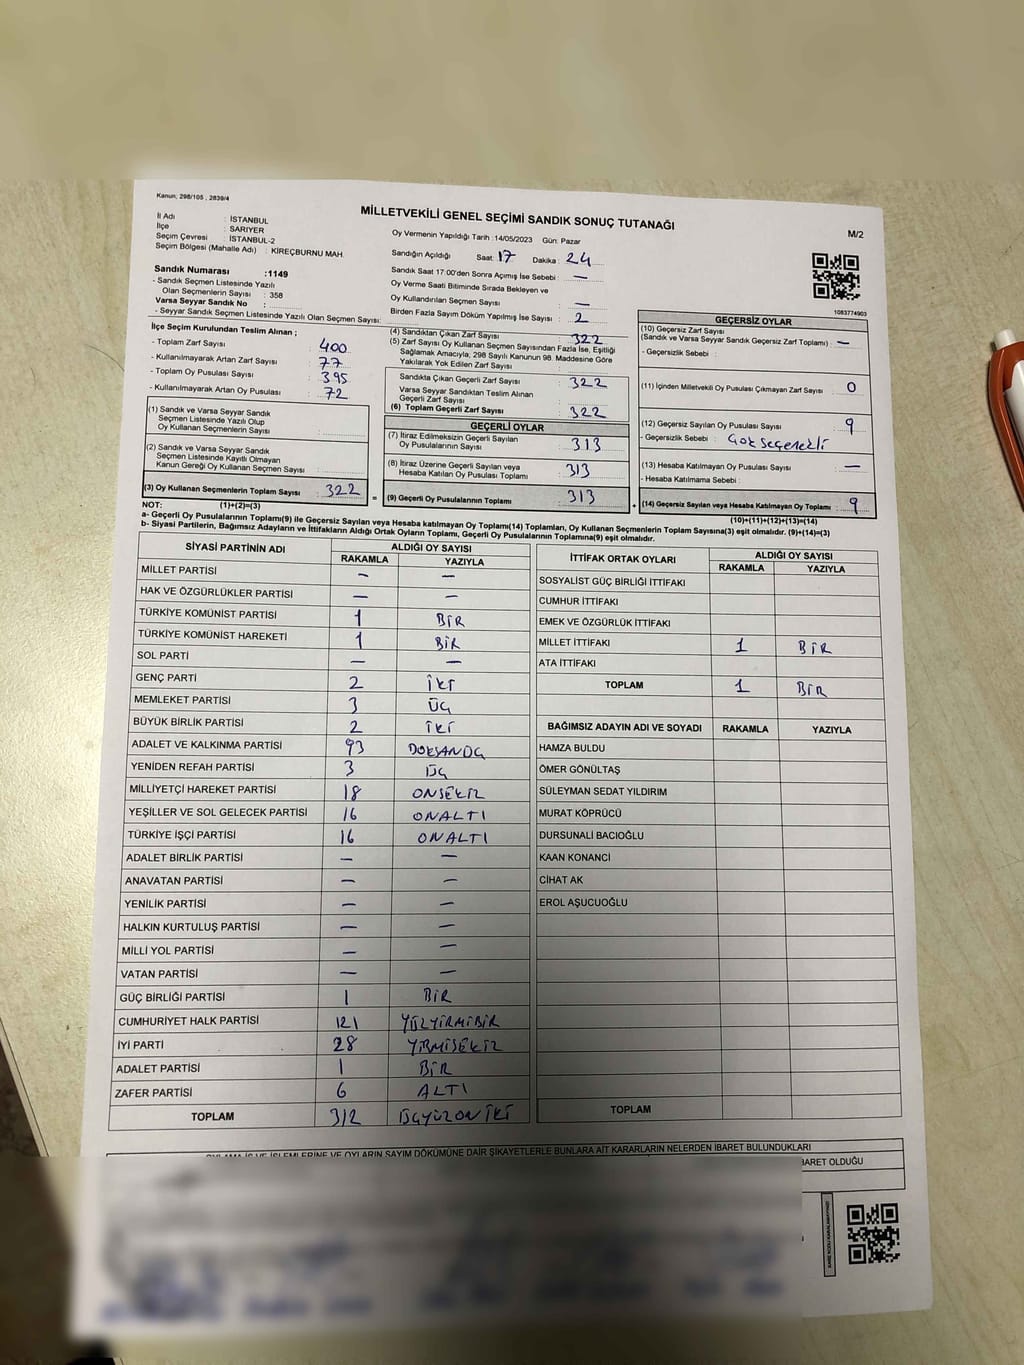 Kanun; 298/105 , 2839/4
MİLLETVEKİLİ GENEL SEÇİMİ SANDIK SONUÇ TUTANAĞI
M/2
İl Adı : İSTANBUL
İlçe : SARIYER
Seçim Çevresi : İSTANBUL-2
Seçim Bölgesi (Mahalle Adı) : KİREÇBURNU MAH.
Oy Vermenin Yapıldığı Tarih :14/05/2023 Gün: Pazar
Sandığın Açıldığı Saat : 17 Dakika : 24
Sandık Saat 17:00'den Sonra Açımış İse Sebebi : —
Oy Verme Saati Bitiminde Sırada Bekleyen ve
Oy Kullandırılan Seçmen Sayısı : —
Birden Fazla Sayım Döküm Yapılmış İse Sayısı : 2
1083774903
Sandık Numarası :1149
- Sandık Seçmen Listesinde Yazılı
Olan Seçmenlerin Sayısı : 358
Varsa Seyyar Sandık No :
- Seyyar Sandık Seçmen Listesinde Yazılı Olan Seçmen Sayısı:
İlçe Seçim Kurulundan Teslim Alınan ;
- Toplam Zarf Sayısı : 400
- Kullanılmayarak Artan Zarf Sayısı : 77
- Toplam Oy Pusulası Sayısı : 395
- Kullanılmayarak Artan Oy Pusulası : 72
(1) Sandık ve Varsa Seyyar Sandık
Seçmen Listesinde Yazılı Olup
Oy Kullanan Seçmenlerin Sayısı :
(2) Sandık ve Varsa Seyyar Sandık
Seçmen Listesinde Kayıtlı Olmayan
Kanun Gereği Oy Kullanan Seçmen Sayısı :
(3) Oy Kullanan Seçmenlerin Toplam Sayısı : 322
(1)+(2)=(3)
(4) Sandıktan Çıkan Zarf Sayısı : 322
(5) Zarf Sayısı Oy Kullanan Seçmen Sayısından Fazla İse, Eşitliği
Sağlamak Amacıyla, 298 Sayılı Kanunun 98. Maddesine Göre
Yakılarak Yok Edilen Zarf Sayısı :
Sandıkta Çıkan Geçerli Zarf Sayısı : 322
Varsa Seyyar Sandıktan Teslim Alınan
Geçerli Zarf Sayısı :
(6) Toplam Geçerli Zarf Sayısı : 322
GEÇERLİ OYLAR
(7) İtiraz Edilmeksizin Geçerli Sayılan
Oy Pusulalarının Sayısı : 313
(8) İtiraz Üzerine Geçerli Sayılan veya
Hesaba Katılan Oy Pusulası Toplamı : 313
= (9) Geçerli Oy Pusulalarının Toplamı : 313
GEÇERSİZ OYLAR
(10) Geçersiz Zarf Sayısı
(Sandık ve Varsa Seyyar Sandık Geçersiz Zarf Toplamı) : —
- Geçersizlik Sebebi :
(11) İçinden Milletvekili Oy Pusulası Çıkmayan Zarf Sayısı : 0
(12) Geçersiz Sayılan Oy Pusulası Sayısı : 9
- Geçersizlik Sebebi : Çok seçenekli
(13) Hesaba Katılmayan Oy Pusulası Sayısı : —
- Hesaba Katılmama Sebebi :
+ (14) Geçersiz Sayılan veya Hesaba Katılmayan Oy Toplamı : 9
(10)+(11)+(12)+(13)=(14)
NOT:
a- Geçerli Oy Pusulalarının Toplamı(9) ile Geçersiz Sayılan veya Hesaba katılmayan Oy Toplam(14) Toplamları, Oy Kullanan Seçmenlerin Toplam Sayısına(3) eşit olmalıdır. (9)+(14)=(3)
b- Siyasi Partilerin, Bağımsız Adayların ve İttifakların Aldığı Ortak Oyların Toplamı, Geçerli Oy Pusulalarının Toplamına(9) eşit olmalıdır.
SİYASİ PARTİNİN ADI ALDIĞI OY SAYISI
RAKAMLA YAZIYLA
MİLLET PARTİSİ — —
HAK VE ÖZGÜRLÜKLER PARTİSİ — —
TÜRKİYE KOMÜNİST PARTİSİ 1 BİR
TÜRKİYE KOMÜNİST HAREKETİ 1 BİR
SOL PARTİ — —
GENÇ PARTİ 2 İKİ
MEMLEKET PARTİSİ 3 ÜÇ
BÜYÜK BİRLİK PARTİSİ 2 İKİ
ADALET VE KALKINMA PARTİSİ 93 DOKSANÜÇ
YENİDEN REFAH PARTİSİ 3 ÜÇ
MİLLİYETÇİ HAREKET PARTİSİ 18 ONSEKİZ
YEŞİLLER VE SOL GELECEK PARTİSİ 16 ONALTI
TÜRKİYE İŞÇİ PARTİSİ 16 ONALTI
ADALET BİRLİK PARTİSİ — —
ANAVATAN PARTİSİ — —
YENİLİK PARTİSİ — —
HALKIN KURTULUŞ PARTİSİ — —
MİLLİ YOL PARTİSİ — —
VATAN PARTİSİ — —
GÜÇ BİRLİĞİ PARTİSİ 1 BİR
CUMHURİYET HALK PARTİSİ 121 YÜZYİRMİBİR
İYİ PARTİ 28 YİRMİSEKİZ
ADALET PARTİSİ 1 BİR
ZAFER PARTİSİ 6 ALTI
TOPLAM 312 ÜÇYÜZONİKİ
İTTİFAK ORTAK OYLARI ALDIĞI OY SAYISI
RAKAMLA YAZIYLA
SOSYALİST GÜÇ BİRLİĞİ İTTİFAKI
CUMHUR İTTİFAKI
EMEK VE ÖZGÜRLÜK İTTİFAKI
MİLLET İTTİFAKI 1 BİR
ATA İTTİFAKI
TOPLAM 1 BİR
BAĞIMSIZ ADAYIN ADI VE SOYADI RAKAMLA YAZIYLA
HAMZA BULDU
ÖMER GÖNÜLTAŞ
SÜLEYMAN SEDAT YILDIRIM
MURAT KÖPRÜCÜ
DURSUNALİ BACIOĞLU
KAAN KONANCİ
CİHAT AK
EROL AŞUCUOĞLU
TOPLAM
OYLAMA İŞ VE İŞLEMLERİNE VE OYLARIN SAYIM DÖKÜMÜNE DAİR ŞİKAYETLERLE BUNLARA AİT KARARLARIN NELERDEN İBARET BULUNDUKLARI
BARET OLDUĞU